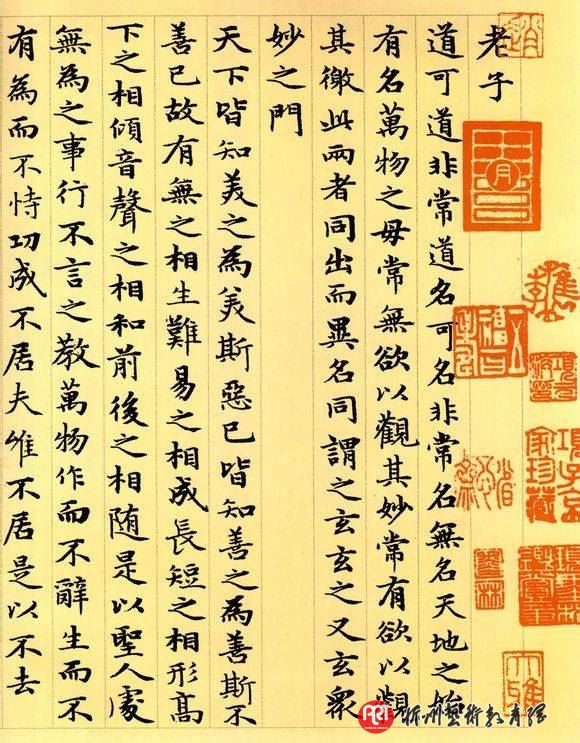 老子
道可道非常道名可名非常名無名天地之始
有名萬物之母常無欲以觀其妙常有欲以觀
其徼此兩者同出而異名同謂之玄玄之又玄衆
妙之門
天下皆知美之為美斯惡已皆知善之為善斯不
善已故有無之相生難易之相成長短之相形高
下之相傾音聲之相和前後之相随是以聖人處
無為之事行不言之教萬物作而不辭生而不
有為而不恃功成不居夫惟不居是以不去
項子京家珍藏
墨林
ART